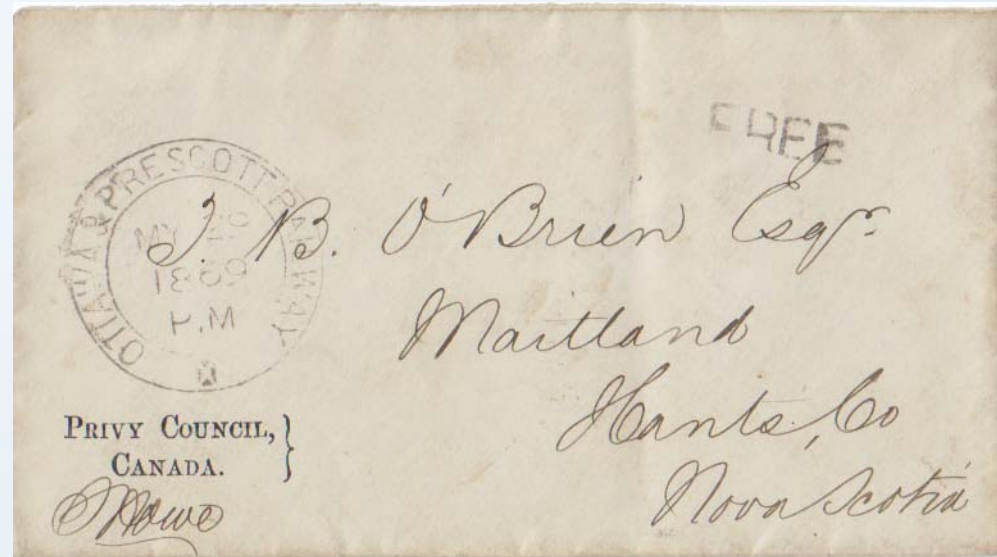 FREE
OTTAWA & PRESCOTT RAILWAY
MY 20
1869
P.M
J. B. O'Brien Esqr.
Maitland
Hants, Co
Nova Scotia
PRIVY COUNCIL,
CANADA.
JHowe